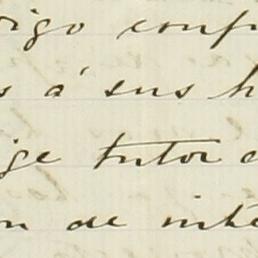 rigo conf
s á sus h
ige tutor a
n de inte